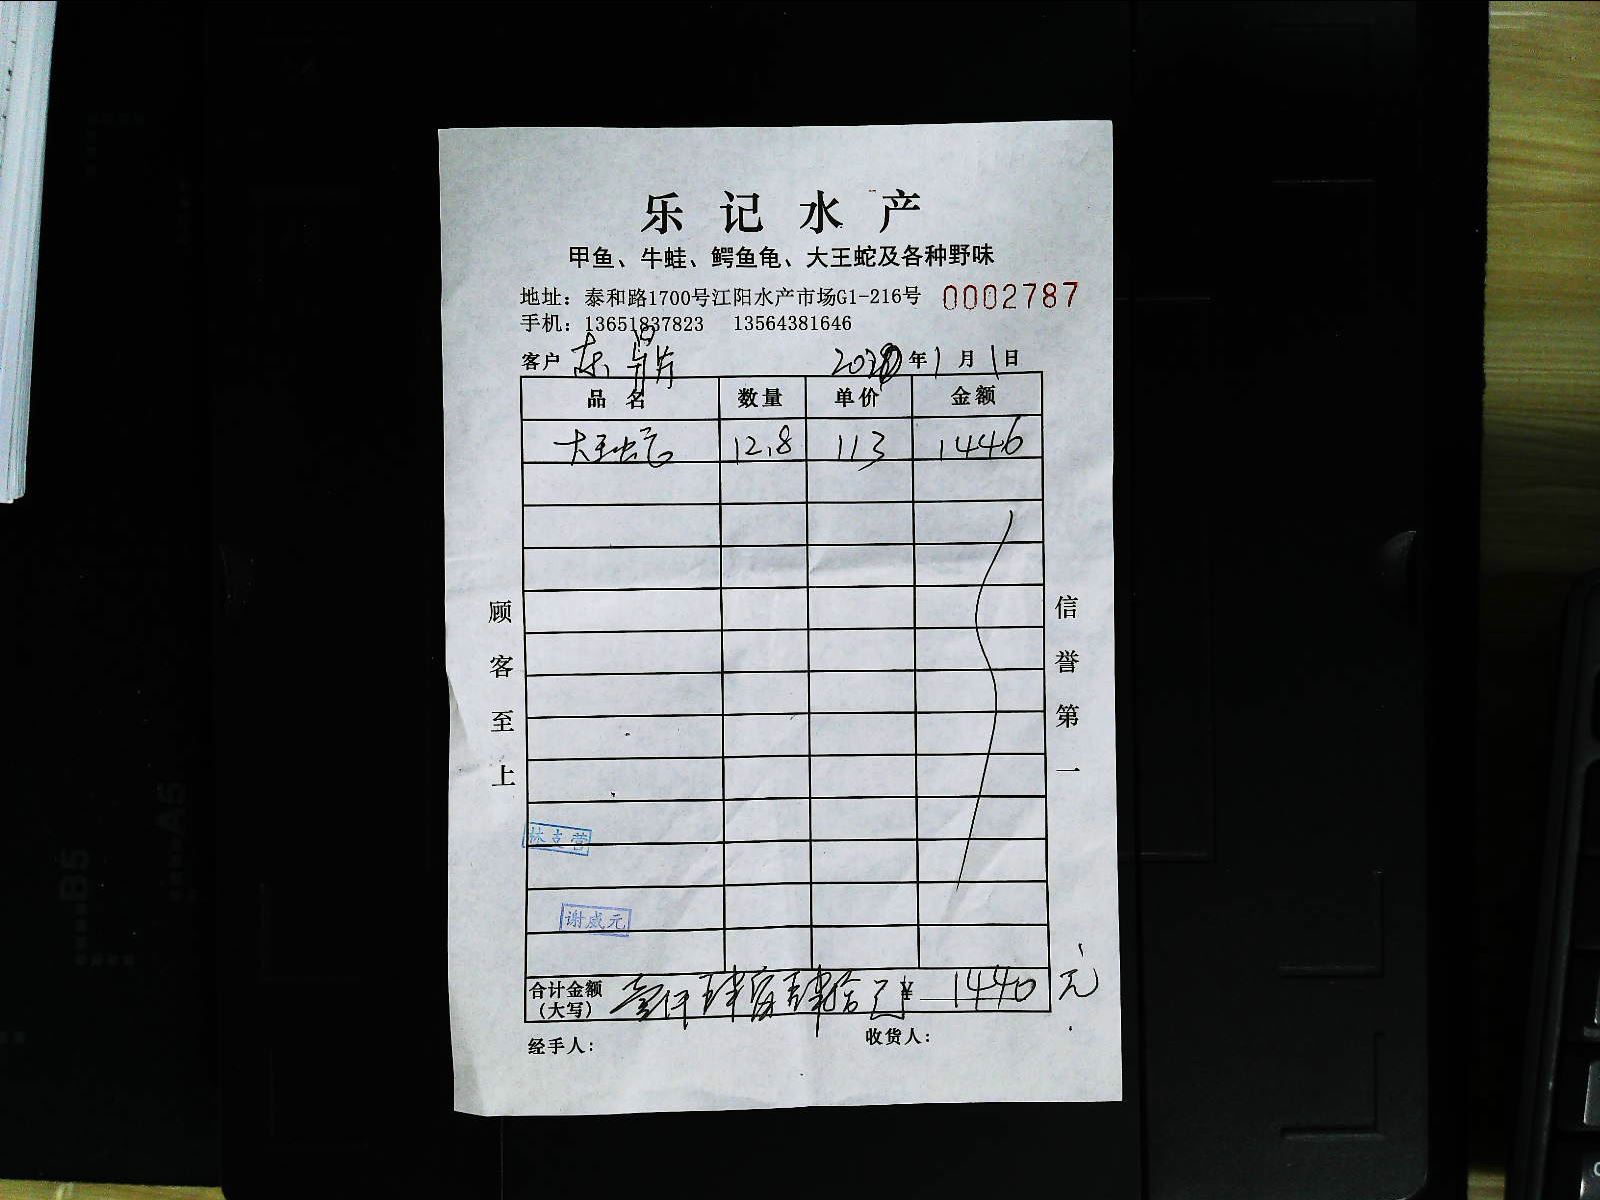 乐记水产
甲鱼、牛蛙、鳄鱼龟、大王蛇及各种野味
地址：泰和路1700号江阳水产市场G1-216号 0002787
手机：13651837823 13564381646
客户 年1月1日
品名 数量 单价 金额
大王蛇 12.8 113 1446
顾客至上
信誉第一
林支营
谢威元
合计金额（大写） 壹仟肆佰肆拾 ¥ 1440元
经手人： 收货人：